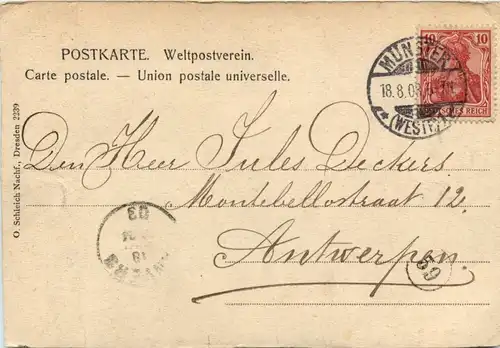 POSTKARTE. Weltpostverein.
Carte postale. — Union postale universelle.
10
DEUTSCHES REICH
MÜNSTER
18.8.03
(WESTF.)
Den Heer Jules Deckers
Montebellostraat 12.
Antwerpen.
03
18
59
O. Schleich Nachf., Dresden 2239